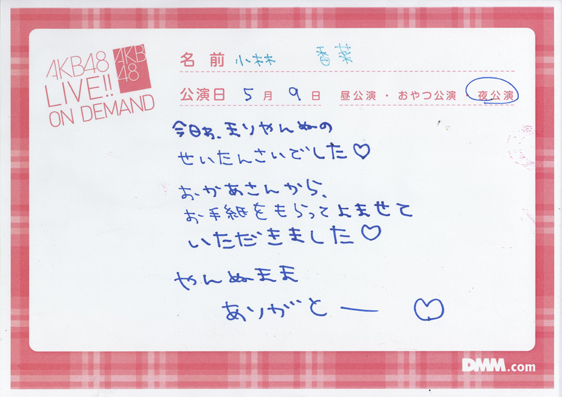 AKB48
LIVE!!
ON DEMAND
AKB
48
名前 小林 香菜
公演日 5月 9日 昼公演・おやつ公演・夜公演
今日わ、まりやんぬの
せいたんさいでした♡
おかあさんから、
お手紙をもらってよませて
いただきました♡
やんぬまま
ありがとー ♡
DMM.com